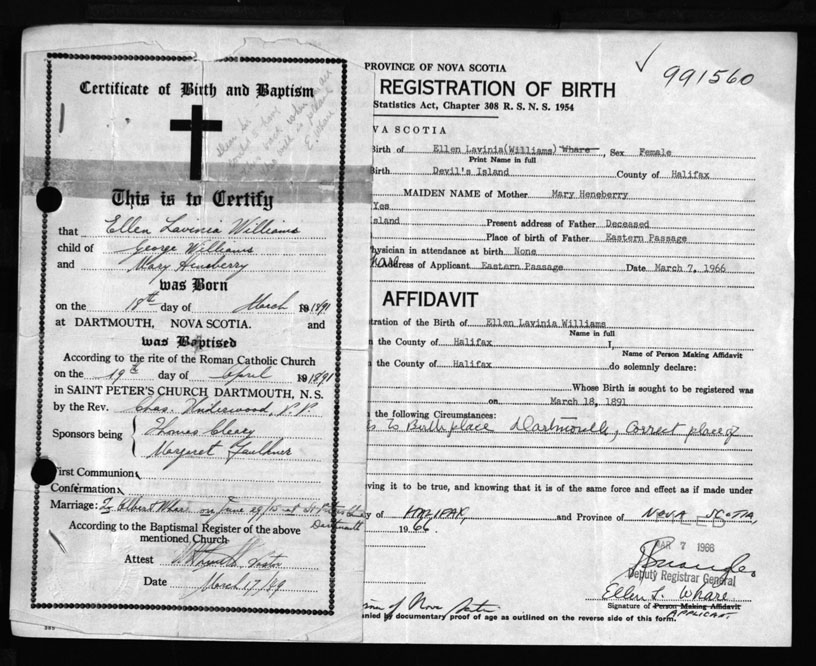 Certificate of Birth and Baptism
This is to Certify
that Ellen Lavinea Williams
child of George Williams
and Mary Heneberry
was Born
on the 18th day of March 1891
at DARTMOUTH, NOVA SCOTIA. and
was Baptised
According to the rite of the Roman Catholic Church
on the 19th day of April 1891
in SAINT PETER'S CHURCH DARTMOUTH, N. S.
by the Rev. Chas. Underwood, P.P.
Sponsors being Thomas
Margaret Faulkner
First Communion
Confirmation
Marriage: To Albert Whare on June at St Peters
Dartmouth
According to the Baptismal Register of the above
mentioned Church
Attest Pastor
Date March 17/49
PROVINCE OF NOVA SCOTIA
991560
REGISTRATION OF BIRTH
Statistics Act, Chapter 308 R. S. N. S. 1954
VA SCOTIA
Birth of Ellen Lavinia (Williams) Whare, Sex Female
Print Name in full
Birth Devil's Island County of Halifax
MAIDEN NAME of Mother Mary Heneberry
Yes
sland Present address of Father Deceased
Place of birth of Father Eastern Passage
hysician in attendance at birth None
Address of Applicant Eastern Passage Date March 7, 1966
AFFIDAVIT
tration of the Birth of Ellen Lavinia Williams
Name in full
n the County of Halifax I,
Name of Person Making Affidavit
n the County of Halifax do solemnly declare:
Whose Birth is sought to be registered was
on March 18, 1891
n the following Circumstances:
s to Birthplace Dartmouth, correct place of
ving it to be true, and knowing that it is of the same force and effect as if made under
y of HALIFAX, and Province of NOVA SCOTIA,
1966.
MAR 7 1966
Deputy Registrar General
Ellen L. Whare
Signature of Person Making Affidavit
APPLICANT
of Nova Scotia
nied by documentary proof of age as outlined on the reverse side of this form.